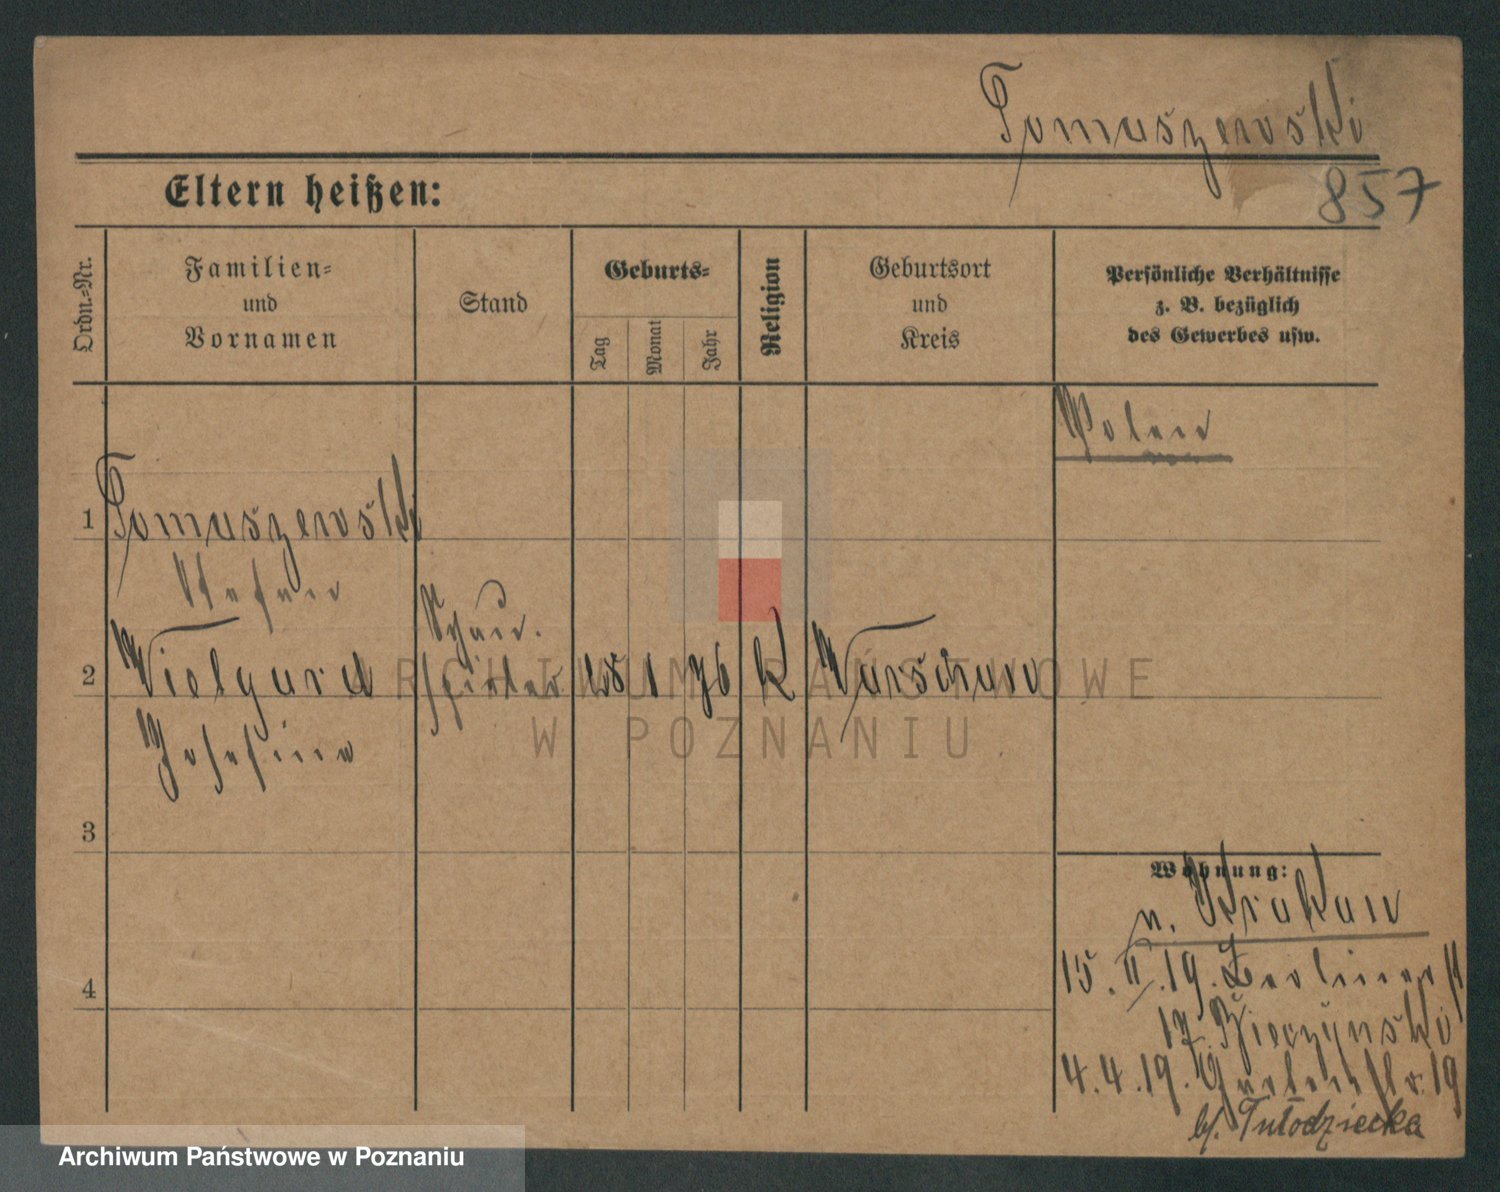 Tomaszewski
857
Eltern heißen:
Ordn.-Nr.
Familien-
und
Vornamen
Stand
Geburts-
Tag
Monat
Jahr
Religion
Geburtsort
und
Kreis
Persönliche Verhältnisse
z. B. bezüglich
des Gewerbes usw.
Polen
1 Tomaszewski
Stefan
2 Wielgard Schau-
spieler 1 76 k Warschau
Josefine
3
Wohnung:
n. Krakau
15. II. 19. Berlinerst
17. Bieczynski
4
4. 4. 19. 19
bf. Tułodziecka
ARCHIWUM PAŃSTWOWE
W POZNANIU
Archiwum Państwowe w Poznaniu